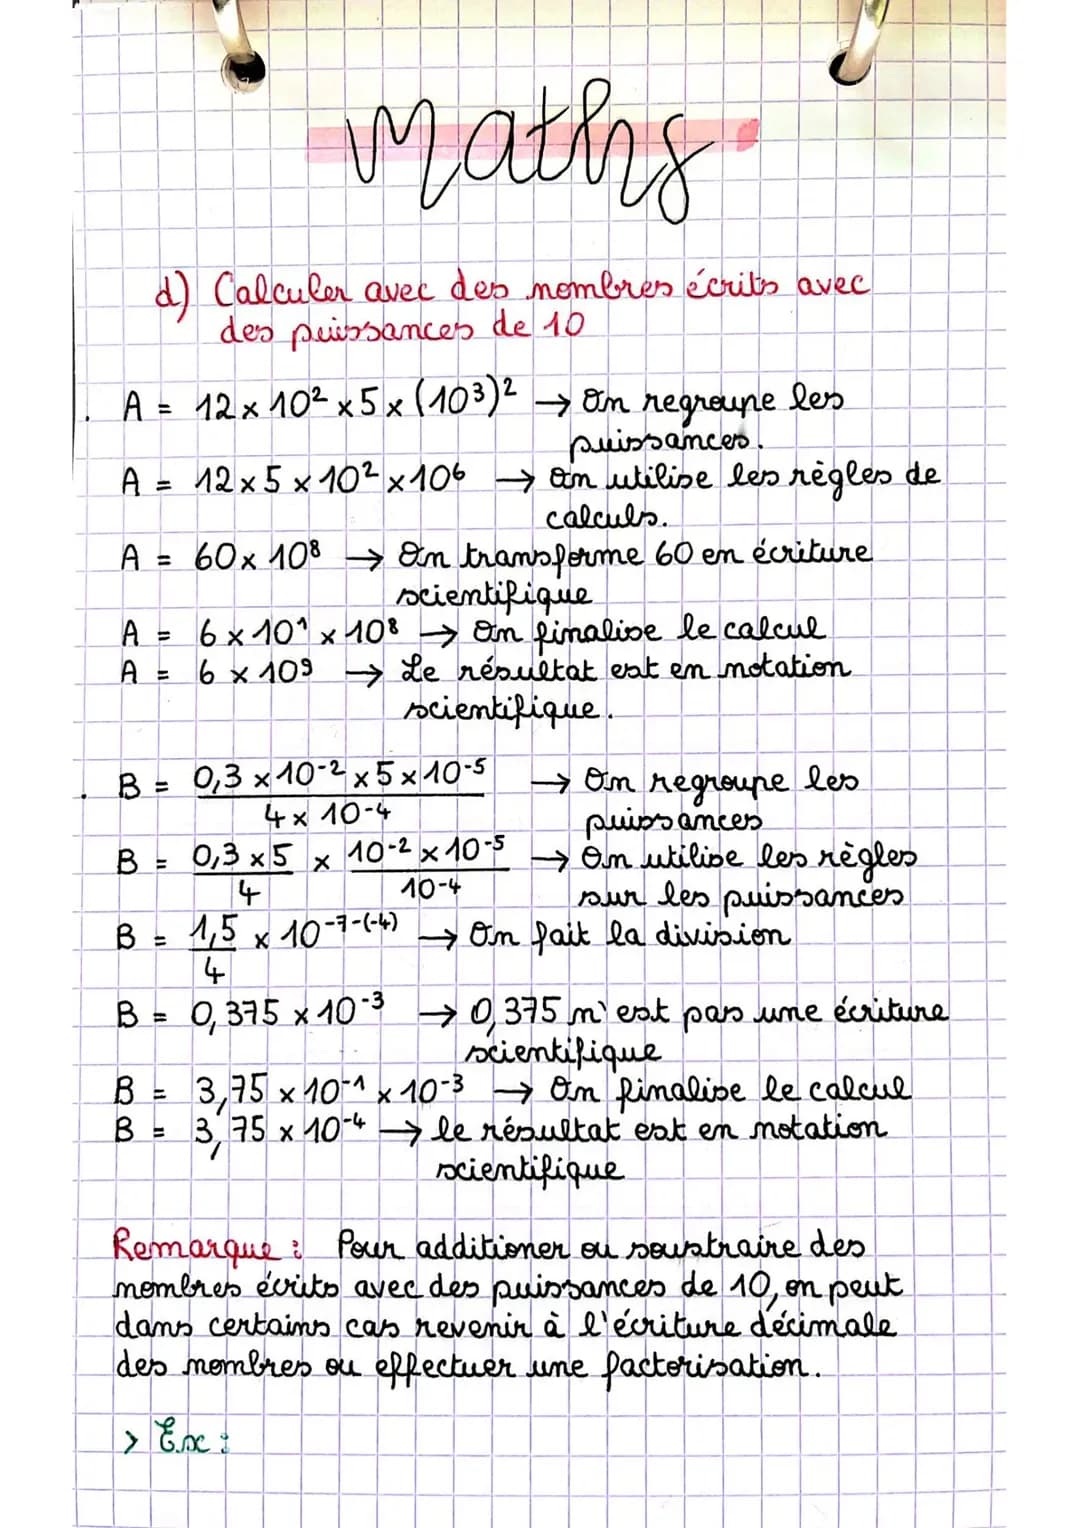 Maths
d) Calculer avec des nombres écrits avec
des puissances de 10
. A = 12 x 10² x 5 x (10³)² → On regroupe les
puissances.
A = 12 x 5 x 10² x 10⁶ → On utilise les règles de
calculs.
A = 60 x 10⁸ → On transforme 60 en écriture
scientifique
A = 6 x 10¹ x 10⁸ → On finalise le calcul
A = 6 x 10⁹ → Le résultat est en notation
scientifique.
. B = 0,3 x 10⁻² x 5 x 10⁻⁵ → On regroupe les
4 x 10⁻⁴ puissances
B = 0,3 x 5 x 10⁻² x 10⁻⁵ → On utilise les règles
4 10⁻⁴ sur les puissances
B = 1,5 x 10⁻⁷⁻⁽⁻⁴⁾ → On fait la division
4
B = 0,375 x 10⁻³ → 0,375 n'est pas une écriture
scientifique
B = 3,75 x 10⁻¹ x 10⁻³ → On finalise le calcul
B = 3,75 x 10⁻⁴ → le résultat est en notation
scientifique
Remarque : Pour additioner ou soustraire des
nombres écrits avec des puissances de 10, on peut
dans certains cas revenir à l'écriture décimale
des nombres ou effectuer une factorisation.
> Ex :